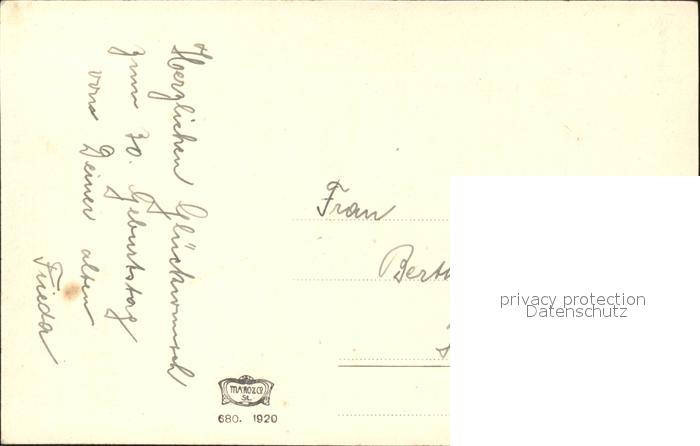 Herzlichen Glückwunsch
zum 70. Geburtstag
von Deiner alten
Frieda
Frau
Berth
MAROZCO
St.
680. 1920
privacy protection
Datenschutz